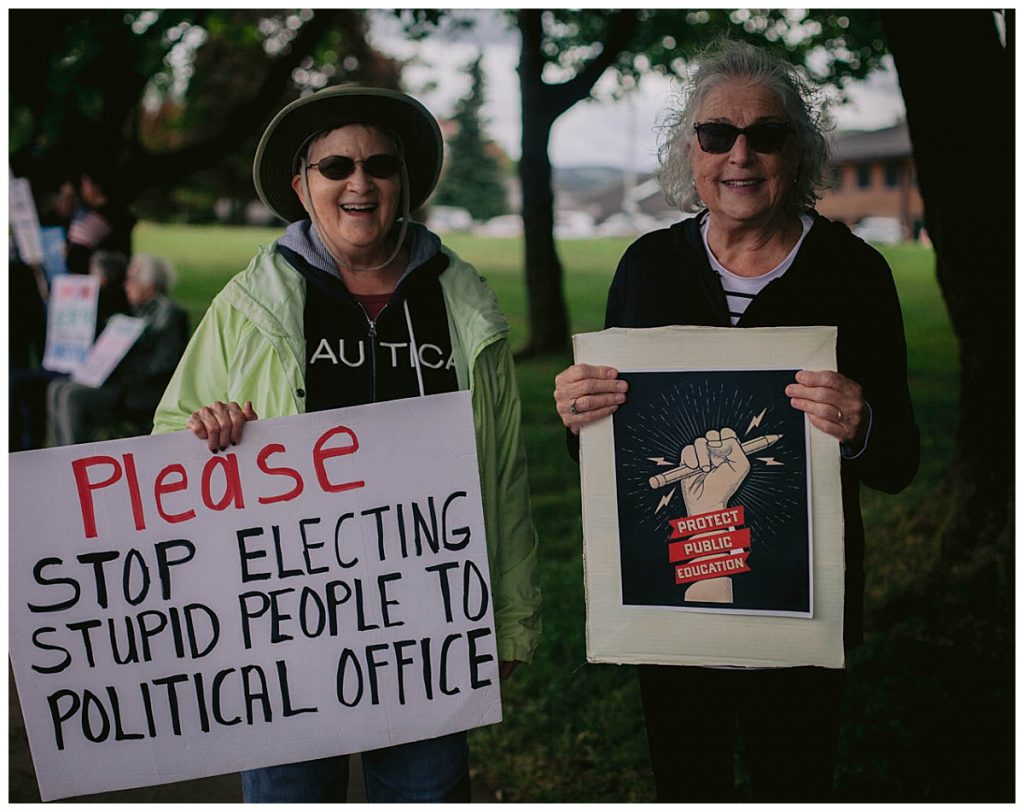 Please
STOP ELECTING
STUPID PEOPLE TO
POLITICAL OFFICE
NAUTICA
PROTECT
PUBLIC
EDUCATION